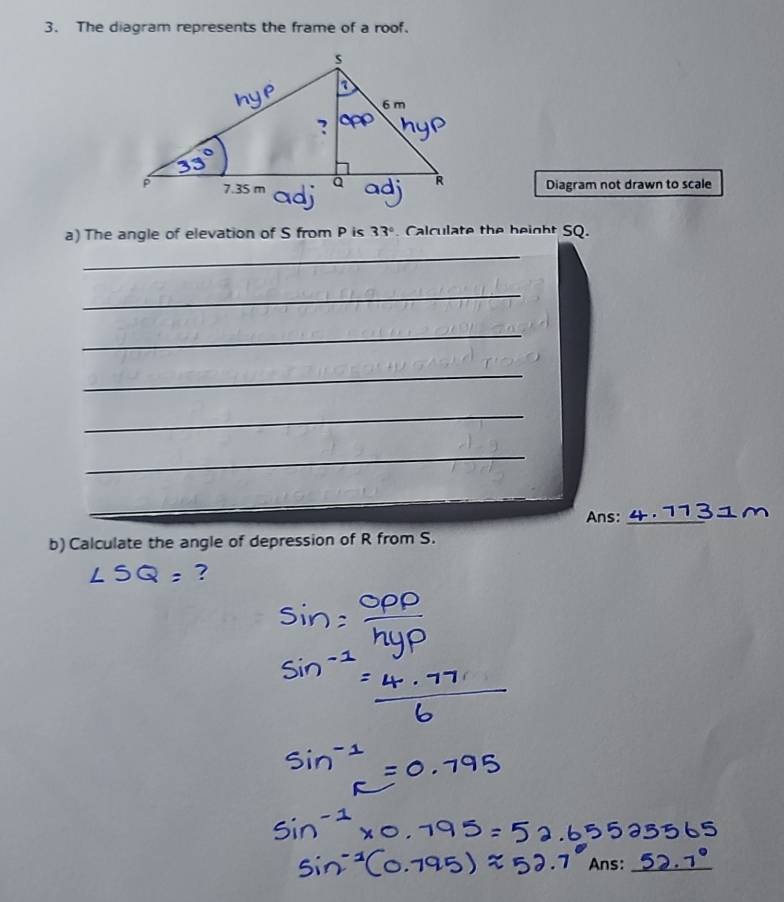 3. The diagram represents the frame of a roof.
S
?
hyp
6 m
? opp hyp
33°
P 7.35 m adj Q adj R
Diagram not drawn to scale
a) The angle of elevation of S from P is 33°. Calculate the height SQ.
Ans: 4.7731m
b) Calculate the angle of depression of R from S.
∠SQ = ?
Sin = opp
hyp
Sin⁻¹ = 4.77
6
Sin⁻¹ = 0.795
Sin⁻¹ x 0.795 = 52.65525565
Sin⁻¹(0.795) ≈ 52.7° Ans: 52.7°